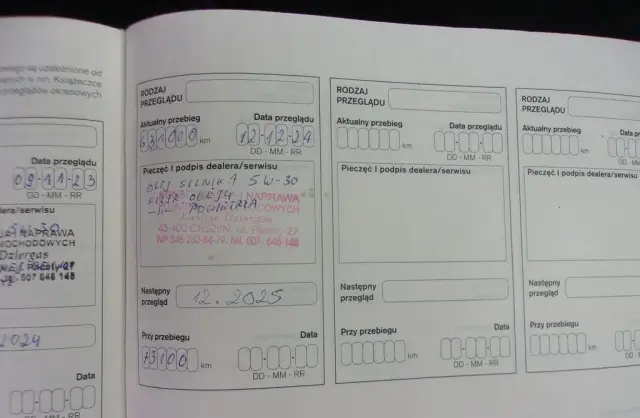 wego są uzależnione od
Książeczce
przeglądów okresowych
Data przeglądu
09-11-23
DD - MM - RR
dealera/serwisu
NAPRAWA
MOCHODOWYCH
Dziergas
607 648 148
2024
Data
DD - MM - RR
RODZAJ
PRZEGLĄDU
Aktualny przebieg
Data przeglądu
631000 km
12-12-24
DD - MM - RR
Pieczęć i podpis dealera/serwisu
OLEJ SILNIKA 5W-30
FILTR OLEJU
-||- POWIETRZA
I NAPRAWA
43-400 CIESZYN, ul. 27
tel. 607- 648-148
Następny
przegląd
12.2025
Przy przebiegu
Data
73100 km
DD - MM - RR
RODZAJ
PRZEGLĄDU
Aktualny przebieg
Data przeglądu
km
DD - MM - RR
Pieczęć i podpis dealera/serwisu
Następny
przegląd
Przy przebiegu
Data
km
DD - MM - RR
RODZAJ
PRZEGLĄDU
Aktualny przebieg
km
Pieczęć i podpis dealera/serwisu
Następny
przegląd
Przy przebiegu
km